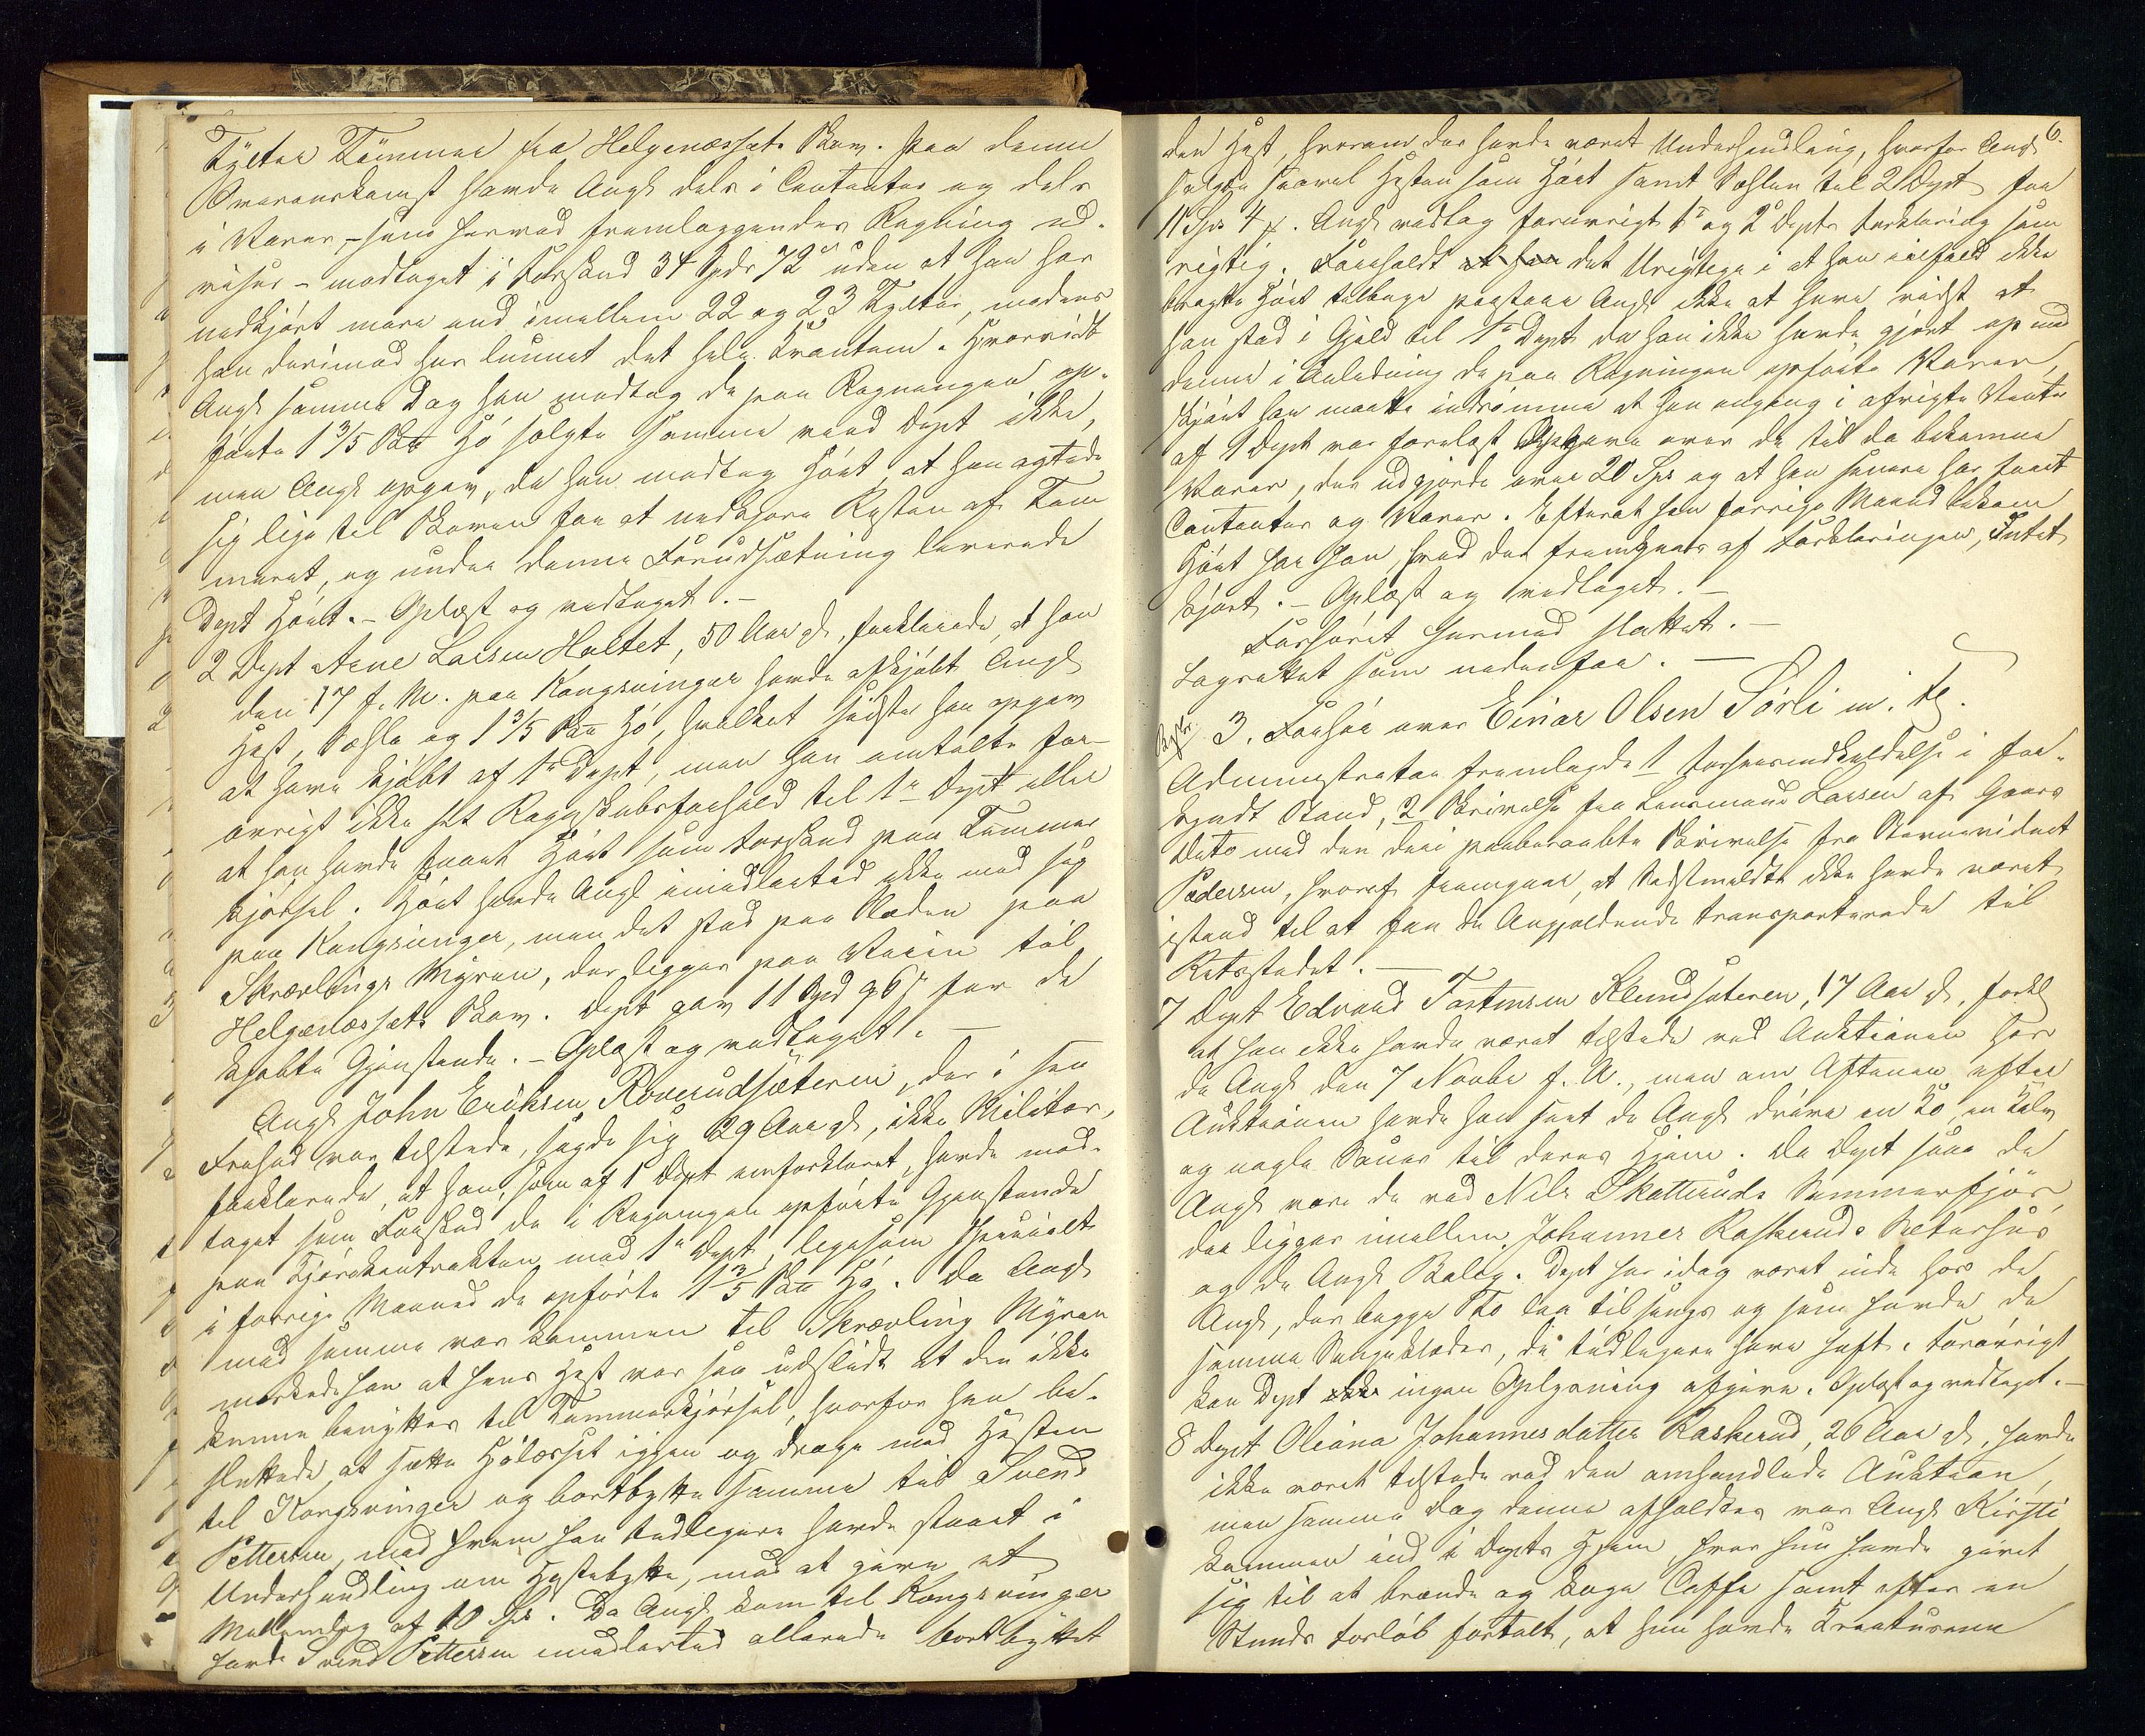 Tylter Tømmer fra Helgenæssets Skov. Paa denne
Overenskomst havde Angk dels i Contanter og dels
i Varer, – hvis herved fremlæggendes Regning ud-
viser – modtaget i Forskud 34 Spdr 72 s uden at han har
nedkjørt mere end imellem 22 og 23 Tylter, medens
han derimod har lunnet det hele Kvantum. Hvorvidt
Angk samme Dag han modtog de paa Regningen op-
førte 1 3/5 Sk℔ Hø solgte samme veed Dept ikke,
men Angk opgav, da han modtog Høet, at han agtede
sig lige til Skoven for at nedkjøre Resten af Tøm
meret, og under denne Forudsætning leverede
Dept Høet. – Oplæst og vedtaget. –
2 Dept Arne Larsen Holtet, 50 Aar gl, forklarede, at han
den 17 f. M. paa Kongsvinger havde afkjøbt Angk
Hest, Sæhle og 1 3/5 Sk℔ Hø, hvilket sidste han opgav
at have kjøbt af 1ste Dept, men han omtalte for-
øvrigt ikke sit Regnskabsforhold til 1ste Dept eller
at han havde faaet Høet som Forskud paa Tømmer
kjørsel. Høet havde Angk imidlertid ikke med sig
paa Kongsvinger, men det stod paa Slæden paa
Skrævlings Myren, der ligger paa Veien til
Helgenæssets Skov. Dept gav 11 Spd 96 s for de
kjøbte Gjenstande. – Oplæst og vedtaget. –
Angk John Eriksen Roverudsæteren, der i sin
Frihed var tilstede, sagde sig 29 Aar gl, ikke Militær,
forklarede, at han, som af 1 Dept omforklaret, havde mod-
taget som Forskud de i Regningen opførte Gjenstande
paa Kjørekontrakten med 1ste Dept, ligesom specielt
i forrige Maaned de opførte 1 3/5 Sk℔ Hø. Da Angk
med samme var kommen til Skrævling Myren
mærkede han at hans Hest var saa udslidt at den ikke
kunne benyttes til Tømmerkjørsel, hvorfor han be-
sluttede at sætte Hølæsset igjen og drage med Hesten
til Kongsvinger og bortbytte samme til Svend
Pettersen, med hvem han tidligere havde staaet i
Underhandling om Hestebytte, mod at give et
Mellemlag af 10 Spd. Da Angk kom til Kongsvinger
havde Svend Pettersen imidlertid allerede bortbyttet
6.
den Hest, hvorom der havde været Underhandling, hvorfor Angk
solgte saavel Hesten som Høet samt Sæhlen til 2 Dept for
11 Spd 4 ort. Angk vedtog forøvrigt 1ste og 2 Depts Forklaring som
rigtig. Foreholdt at han det Urigtige i at han ialfald ikke
bragte Høet tilbage paastaar Angk ikke at have vidst at
han stod i Gjæld til 1ste Dept da han ikke havde gjort op med
denne i Anledning de paa Regningen opførte Varer,
skjønt han maatte indrømme at han engang i afvigte Vinter
af 1 Dept var forelæst Opgave over de til da bekomne
Varer, der udgjorde over 20 Spd og at han senere har faaet
Contanter og Varer. Efterat han forrige Maaned bekom
Høet har han, hvad der fremgaar af Forklaringen, Intet
kjørt. – Oplæst og vedtaget. –
Forhøret hermed sluttet. –
Lagrettet som nedenfor. –
3. Forhør over Einar Olsen Sørli m. fl.
Administrator fremlagde 1 Forhørsindkaldelse i for-
kyndt Stand, 2 Skrivelse fra Lensmand Larsen af Gaars
Dato med den deri paaberaabte Skrivelse fra Stevnevidnet
Pedersen, hvoraf fremgaar, at Sidstmeldte ikke havde været
istand til at faa de Angjældende transporterede til
Retsstedet. –
7 Dept Edvard Tostensen Klundsæteren, 17 Aar gl, forkl
at han ikke havde været tilstede ved Auktionen hos
de Angk den 7 Novbr f. A., men om Aftenen efter
Auktionen havde han seet de Angk drive en Ko, en Kalv
og nogle Sauer til deres Hjem. Da Dept saae de
Angk vare de ved Nils Skatteruds Sommerfjøs,
der ligger imellem Johannes Raskeruds Sæterhus
og de Angk Bolig. Dept har idag været inde hos de
Angk, der begge To laa tilsengs og som havde de
samme Sengeklæder, de tidligere have havt. Forøvrigt
kan Dept ikke ingen Oplysning afgive. Oplæst og vedtaget. –
8 Dept Oliana Johannesdatter Raskerud, 26 Aar gl, havde
ikke været tilstede ved den omhandlede Auktion,
men samme Dag denne afholdtes var Angk Kirsti
kommen ind i Depts Hjem, hvor hun havde givet
sig til at brænde og koge Caffe samt efter en
Stunds Forløb fortalt, at hun havde Kreaturerne